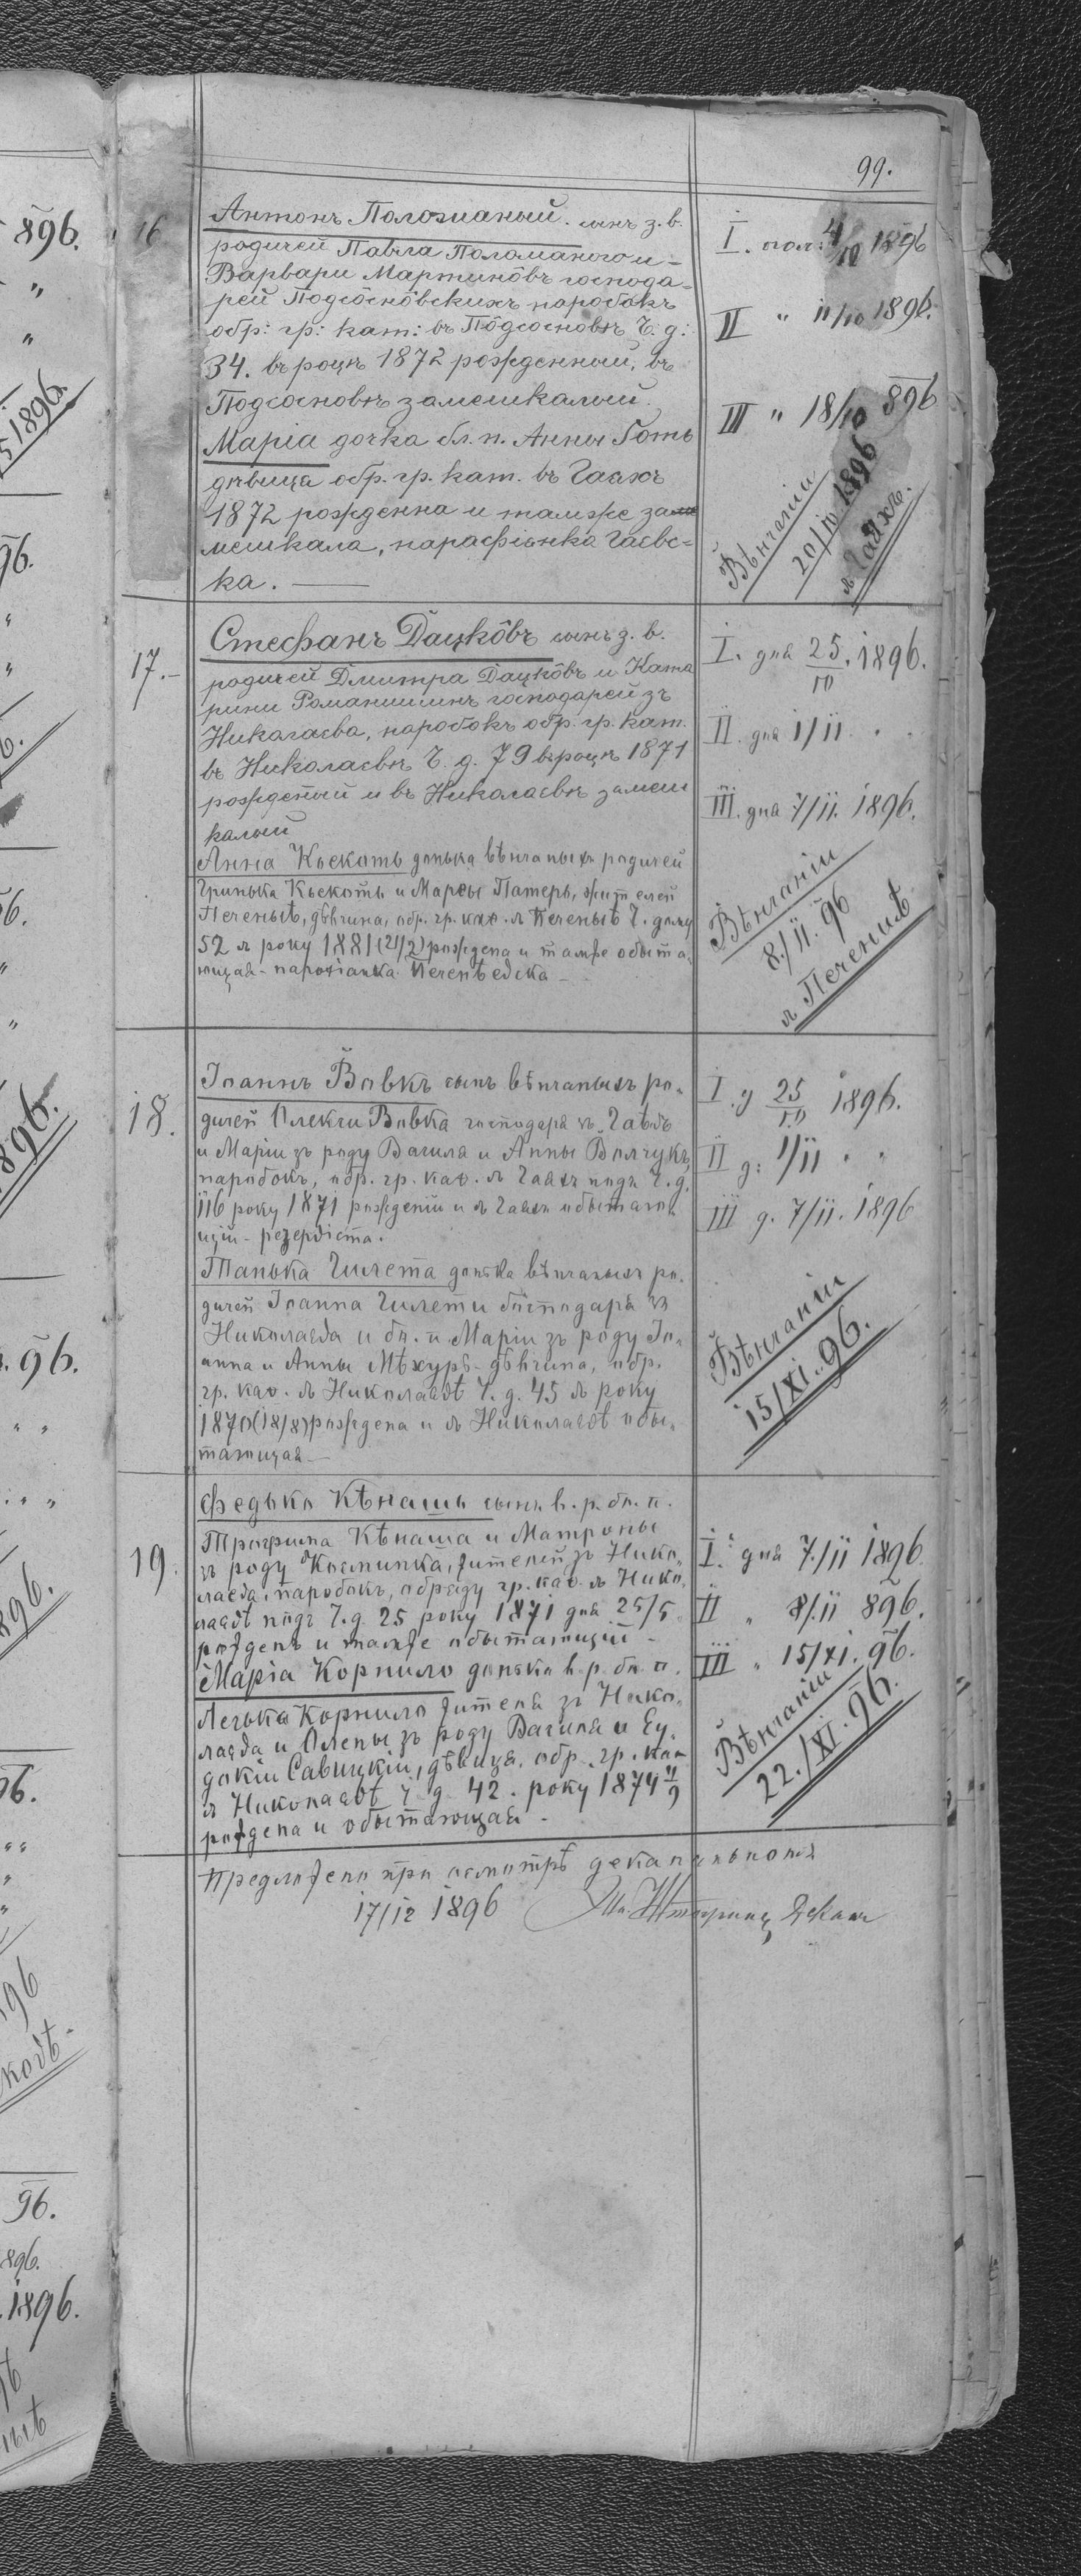 99.
16
Антонъ Поломаный. сынъ з. в.
родичей Павла Поломаного и
Варвари Мартинôвъ господа-
рей Подсôснôвскихъ паробокъ
обр: гр: кат: въ Пôдсосновѣ Ч. д:
34. въ роцѣ 1872 рожденный, въ
Подсосновѣ замешкалый.
Марія дочка бл. п. Анны Готь
дѣвица обр. гр. кат. въ Гаяхъ
1872 рожденна и тамже за
мешкала, парафіянка Гаевс-
ка.
I. огол: 4/10 1896
II " 11/10 1896.
III " 18/10 896
Вѣнчаніи
20/10 1896
в Гаяхъ.
17.-
Стефанъ Дацкôвъ сынъ з. в.
родичей Дмитра Дацкôвъ и Ката
рини Романишинъ господарей зъ
Николаєва, паробокъ обр. гр. кат.
въ Николаєвѣ Ч. д. 79 вроцѣ 1871
рожденый и въ Николаєвѣ замеш
калый
Анна Коскоть донька вѣнчаныхъ родичей
Гринька Коскоть и Марѳы Патерь, жителей
Печеныѣ, дѣвчина, обр. гр. каѳ. в Печеныѣ Ч. дому
52 в року 1881 (21/2) рождена и тамже обыта-
ющая - парохіанка Печенѣвска -
I. дня 25/10. 1896.
II. дня 1/11. " "
III. дня 7/11. 1896.
Вѣнчаніи
8./11. 96
в Печениѣ
18.
Іоаннъ Вовкъ сынъ вѣнчаныхъ ро-
дичей Олексы Вовка господаря зъ Гаѣвъ
и Маріи зъ роду Василя и Анны Волчукъ,
паробокъ, обр. гр. каѳ. в Гаяхъ подъ Ч. д.
116 року 1871 рожденій и в Гаяхъ обытаю
щій - резервіста.
Танька Гилета донька вѣнчаныхъ ро-
дичей Іоанна Гилети господаря зъ
Николаєва и бл. п. Маріи зъ роду Іо-
анна и Анны Мѣхуръ - дѣвчина, обр.
гр. каѳ. в Николаєвѣ Ч. д. 45 в року
1870 (18/8) рождена и в Николаєвѣ обы-
тающая -
I. д 25/10 1896.
II д: 1/11 " "
III д. 7/11. 1896
Вѣнчаніи
15/XI. 96.
19.
Федько Кѣнашъ сынъ в. р. бл. п.
Трофима Кѣнаша и Матроны
зъ роду Космина, жителей зъ Нико-
лаєва, паробокъ, обряду гр. каѳ. в Нико-
лаєвѣ подъ Ч. д. 25 року 1871 дня 25/5
рожденъ и тамже обытающій -
Марія Корнило донька в. р. бл. п.
Леська Корнило жителя зъ Нико-
лаєва и Олены зъ роду Василя и Еу-
докіи Савицкіи, дѣвица, обр. гр. каѳ
в Николаєвѣ Ч. д. 42. року 1874 11/9
рождена и обытающая -
I. дня 7./11 1896.
II " 8/11 896.
III " 15/XI. 96.
Вѣнчаніи
22./XI. 96.
Предложено при осмотрѣ деканальномъ
17/12 1896 Деканъ